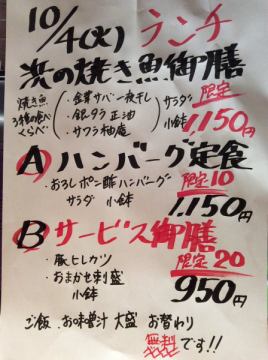 10/4(火) ランチ
浜の焼き魚御膳
焼き魚 3種の食べくらべ
・金華サバ一夜干し
・銀ダラ正油
・サワラ柚庵
サラダ 小鉢
限定
1,150円
A ハンバーグ定食
・おろしポン酢ハンバーグ 限定10
サラダ 小鉢
1,150円
B サービス御膳
・豚ヒレカツ 限定20
・おまかせ刺盛
小鉢
950円
ご飯、お味噌汁 大盛 お替わり
無料です!!